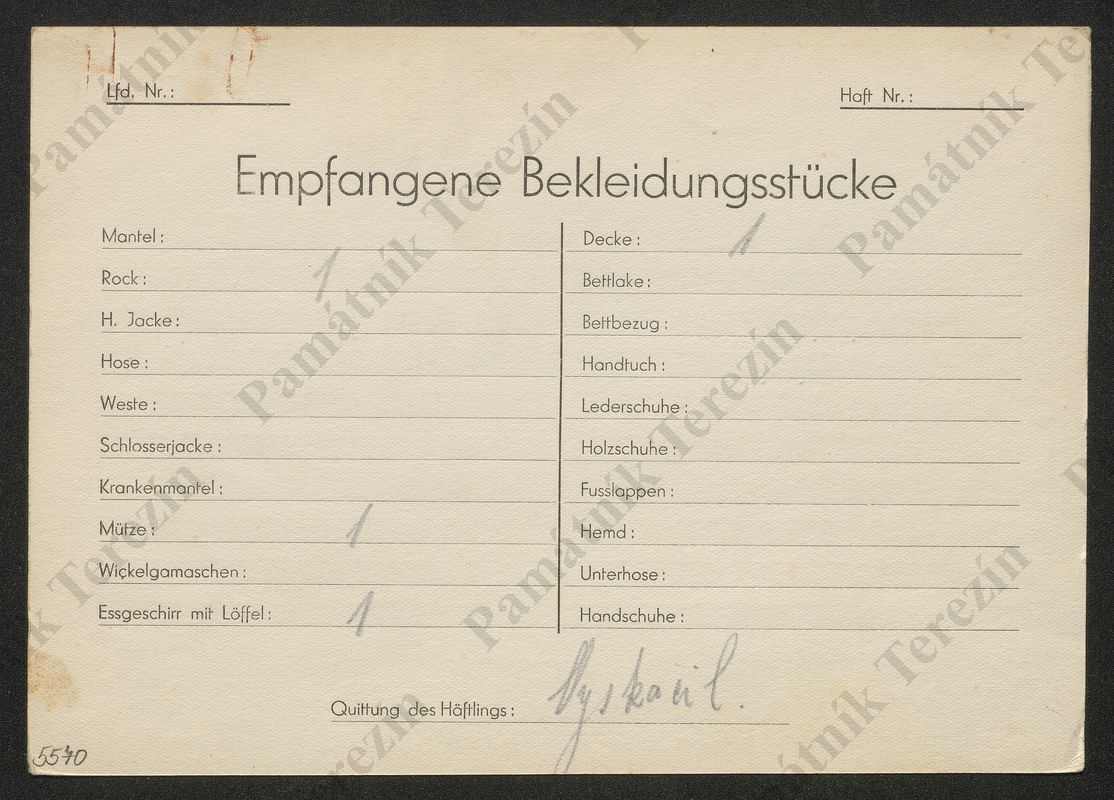 Lfd. Nr.:
Haft Nr.:
Empfangene Bekleidungsstücke
Mantel:
Rock: 1
H. Jacke:
Hose:
Weste:
Schlosserjacke:
Krankenmantel:
Mütze: 1
Wickelgamaschen:
Essgeschirr mit Löffel: 1
Decke: 1
Bettlake:
Bettbezug:
Handtuch:
Lederschuhe:
Holzschuhe:
Fusslappen:
Hemd:
Unterhose:
Handschuhe:
Quittung des Häftlings: Vyskočil.
5570
Památník Terezín